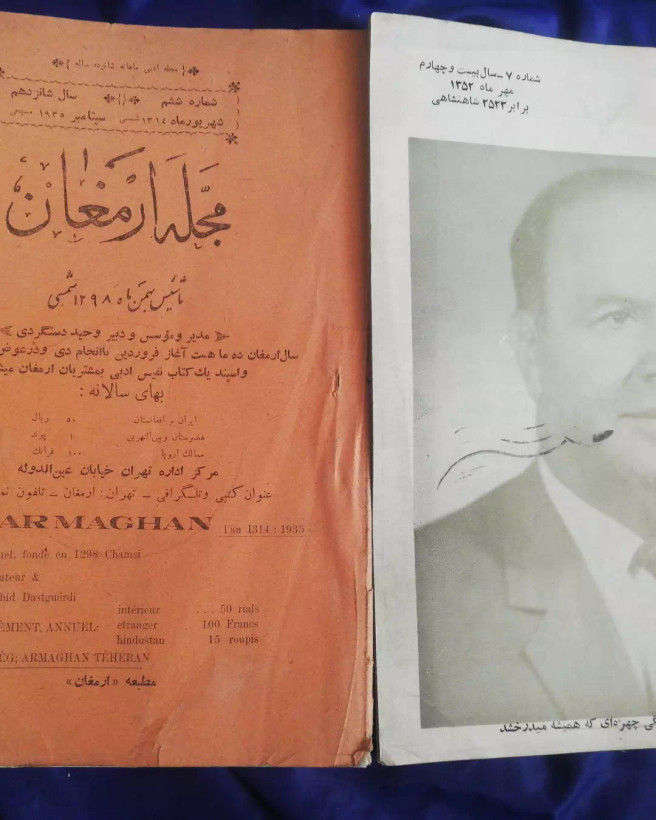 مجله ادبی ماهانه شانزده ساله
شماره ششم
سال شانزدهم
شهریورماه ۱۳۱۴ شمسی
سپتامبر ۱۹۳۵ مسیحی
مجله ارمغان
تأسیس بهمن ماه ۱۲۹۸ شمسی
مدیر و مؤسس و دبیر وحید دستگردی
سال ارمغان ده ماهست آغاز فروردین باانجام دی ودرعوض
واسپند یك كتاب نفیس ادبی بمشتریان ارمغان
بهای سالانه :
ایران و افغانستان ۵۰ ریال
هندوستان و بین‌النهرین ۱ پوند
ممالك اروپا ۱۰۰ فرانك
مركز اداره تهران خیابان عین‌الدوله
عنوان كتبی وتلگرافی ـ تهران : ارمغان ـ تلفون
ARMAGHAN l'an 1314 : 1935
fondé en 1298 Chamsi
&
Dastguérdi
intérieur ... 50 rials
ANNUEL: etranger 100 Francs
hindustan 15 roupis
ARMAGHAN TÉHÉRAN
مطبعه «ارمغان»
شماره ۷ ـ سال بیست و چهارم
مهر ماه ۱۳۵۲
برابر ۲۵۳۳ شاهنشاهی
چهره‌ای که همیشه میدرخشد